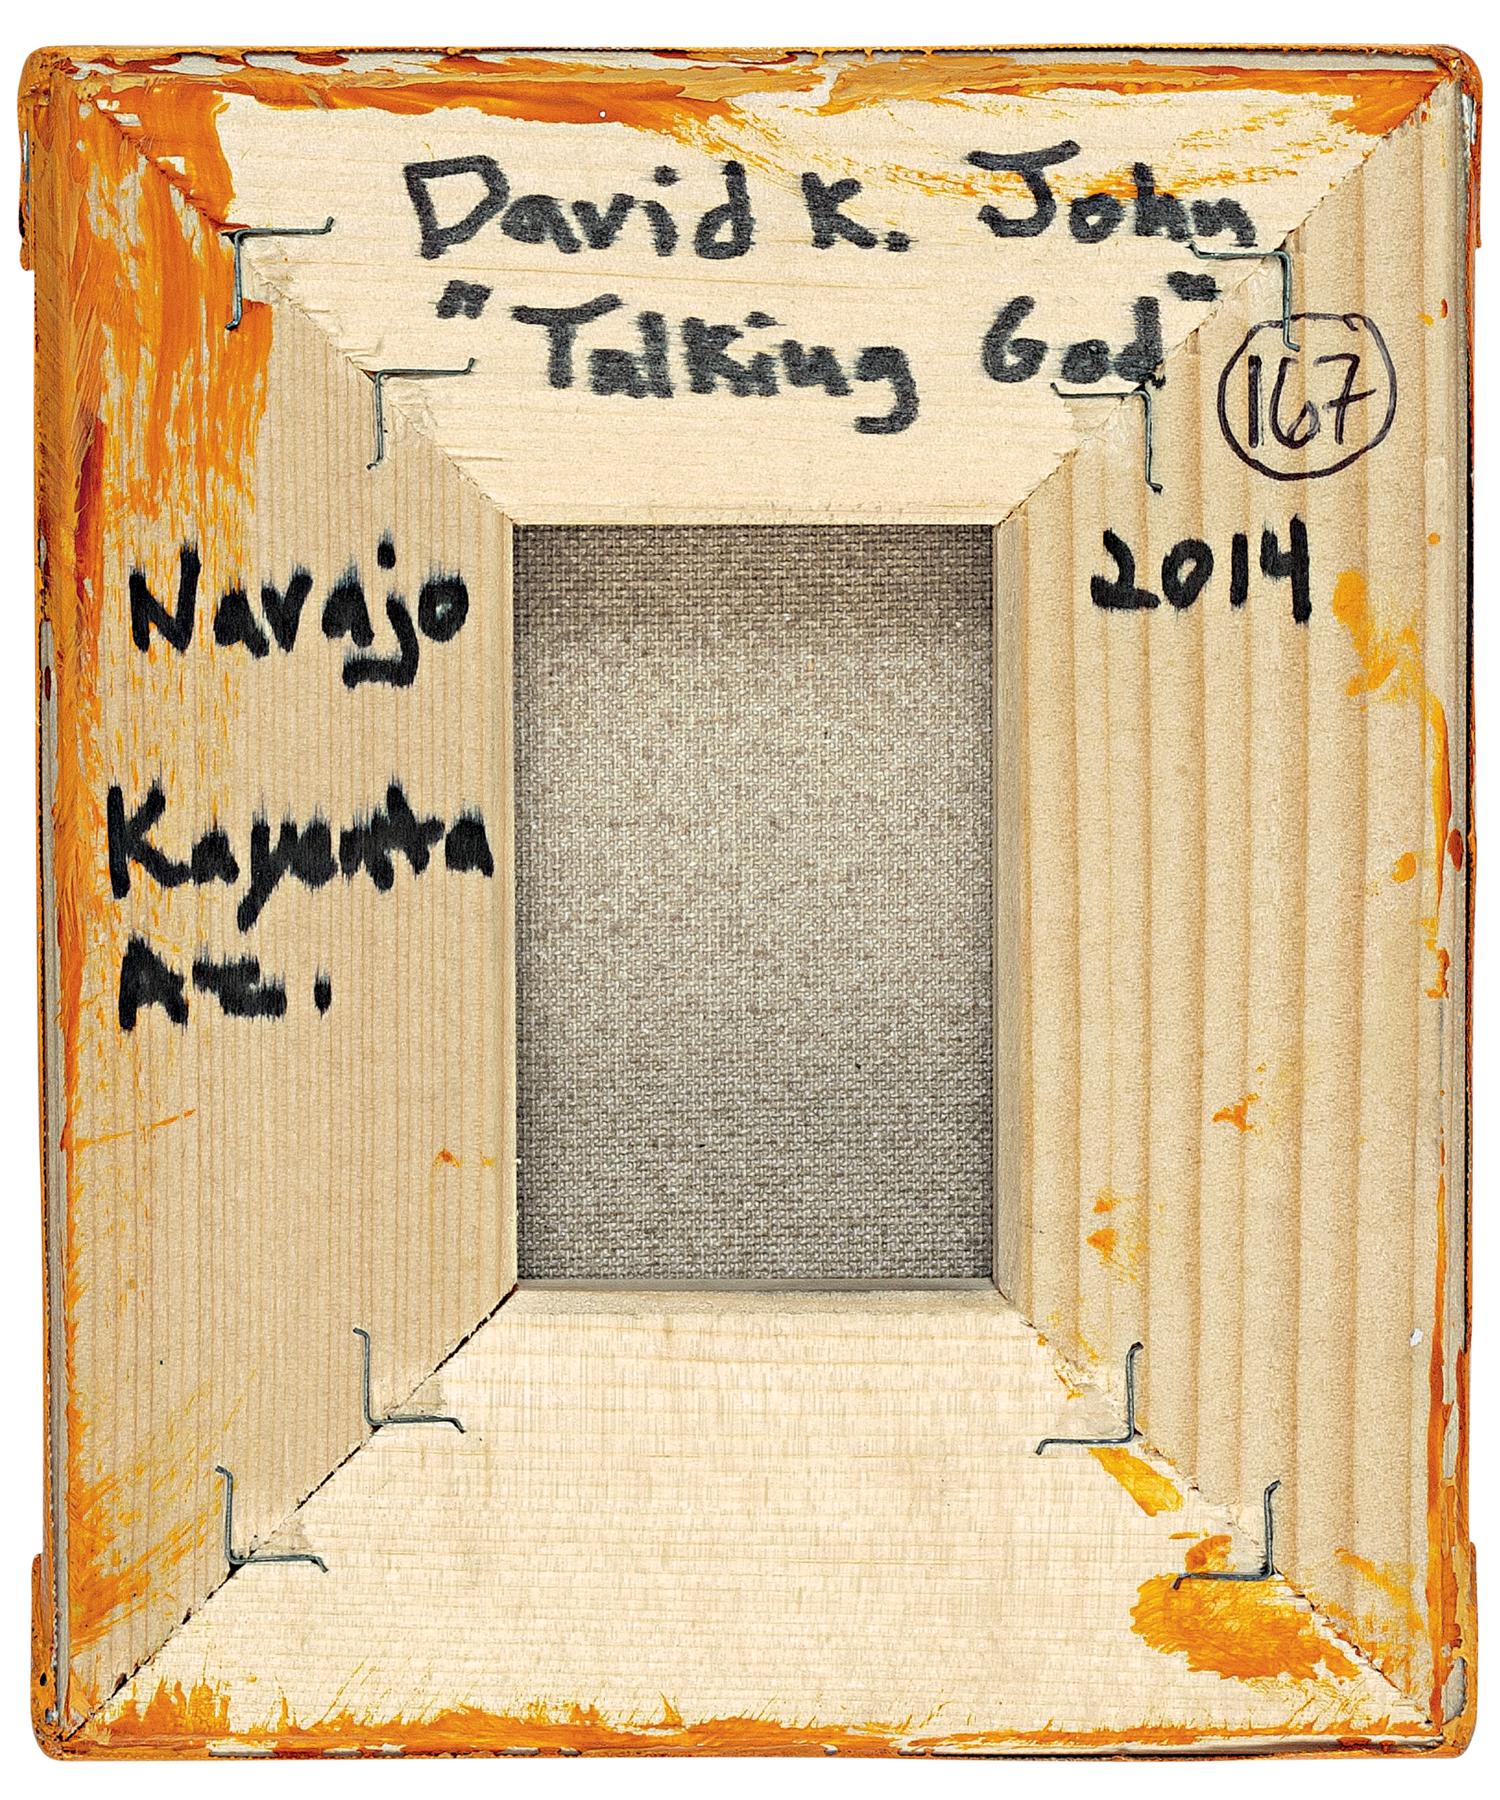 David K. John
"Talking God"
167
Navajo
2014
Kayenta
Az.